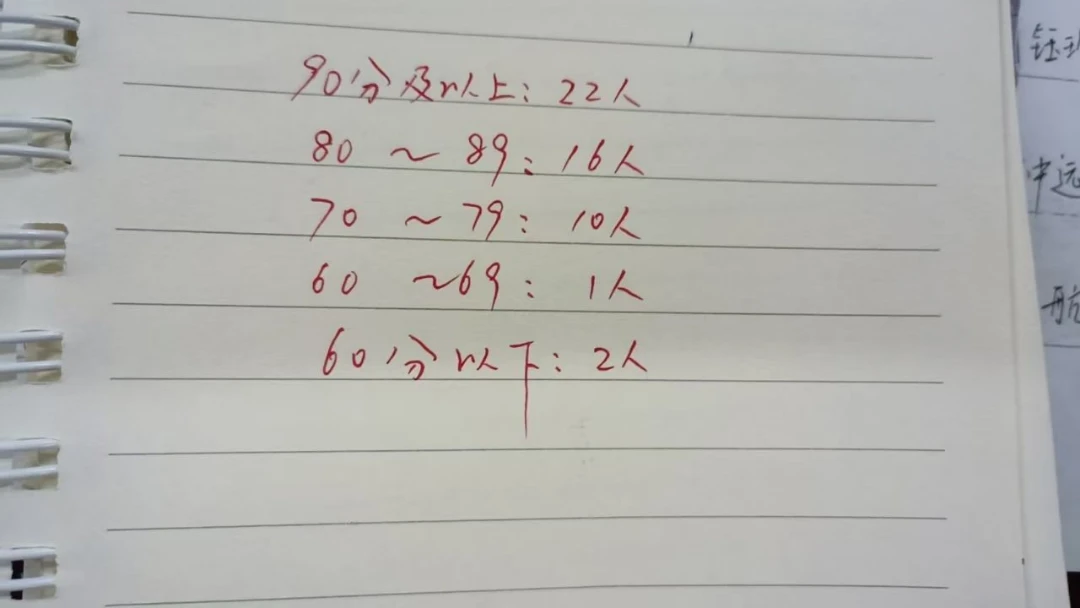 90分及以上：22人
80 ～ 89：16人
70 ～ 79：10人
60 ～69：1人
60分以下：2人
钰
冲远
航